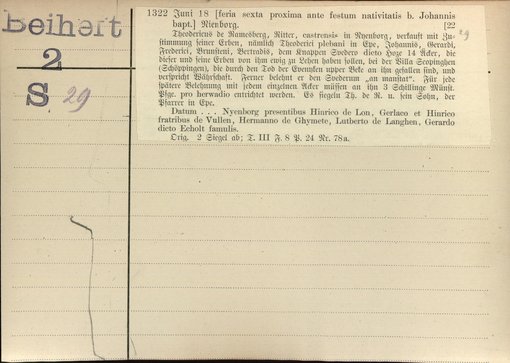 Beiheft
2
S 29
1322 Juni 18 [feria sexta proxima ante festum nativitatis b. Johannis
bapt.] Nienborg. [22
29
Theodericus de Ramesberg, Ritter, castrensis in Nyenborg, verkauft mit Zu-
stimmung seiner Erben, nämlich Theoderici plebani in Epe, Johannis, Gerardi,
Frederici, Brunsteni, Bertradis, dem Knappen Svedero dicto Hoge 14 Äcker, die
dieser und seine Erben von ihm ewig zu Lehen haben sollen, bei der Villa Scopinghen
(Schöppingen), die durch den Tod der upper Beke an ihn gefallen sind, und
verspricht Währschaft. Ferner belehnt er den Svederum „an manstat“. Für jede
spätere Belehnung mit jedem einzelnen Acker müssen an ihn 3 Schillinge Münst.
Pfge. pro herwadio entrichtet werden. Es siegeln Th. de R. u. sein Sohn, der
Pfarrer in Epe.
Datum . . . Nyenborg presentibus Hinrico de Lon, Gerlaco et Hinrico
fratribus de Vullen, Hermanno de Ghymete, Lutberto de Langhen, Gerardo
dicto Echolt famulis.
Orig. 2 Siegel ab; T. III F. 8 P. 24 Nr. 78a.